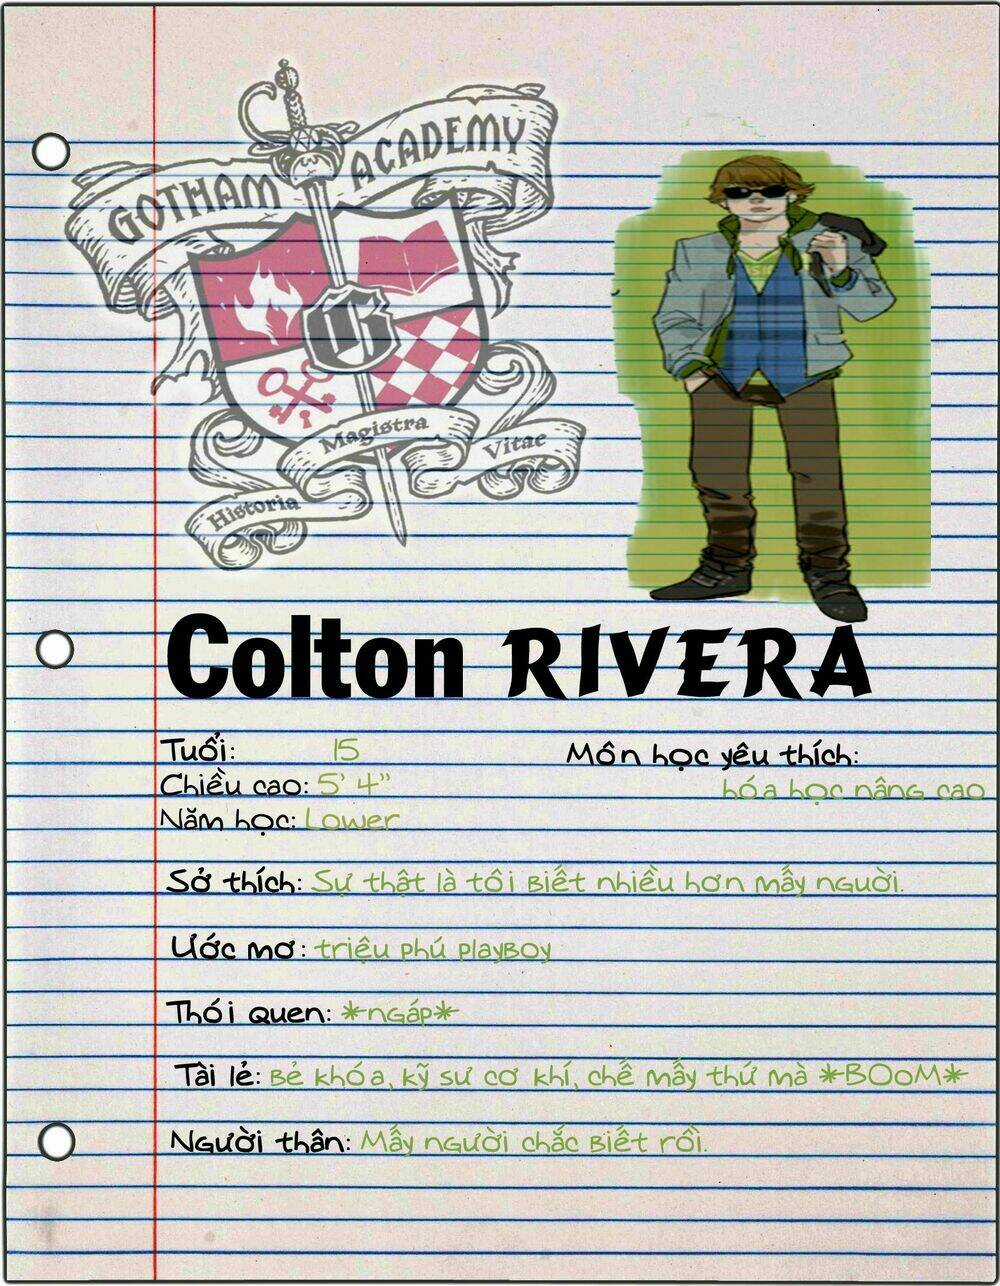 GOTHAM ACADEMY
G
Historia Magistra Vitae
Colton RIVERA
Tuổi: 15
Môn học yêu thích:
Chiều cao: 5' 4"
hóa học nâng cao
Năm học: Lower
Sở thích: Sự thật là tôi biết nhiều hơn mấy nguời.
Ước mơ: triệu phú playboy
Thói quen: *ngáp*
Tài lẻ: Bẻ khóa, kỹ sư cơ khí, chế mấy thứ mà *BOoM*
Người thân: Mấy người chắc biết rồi.